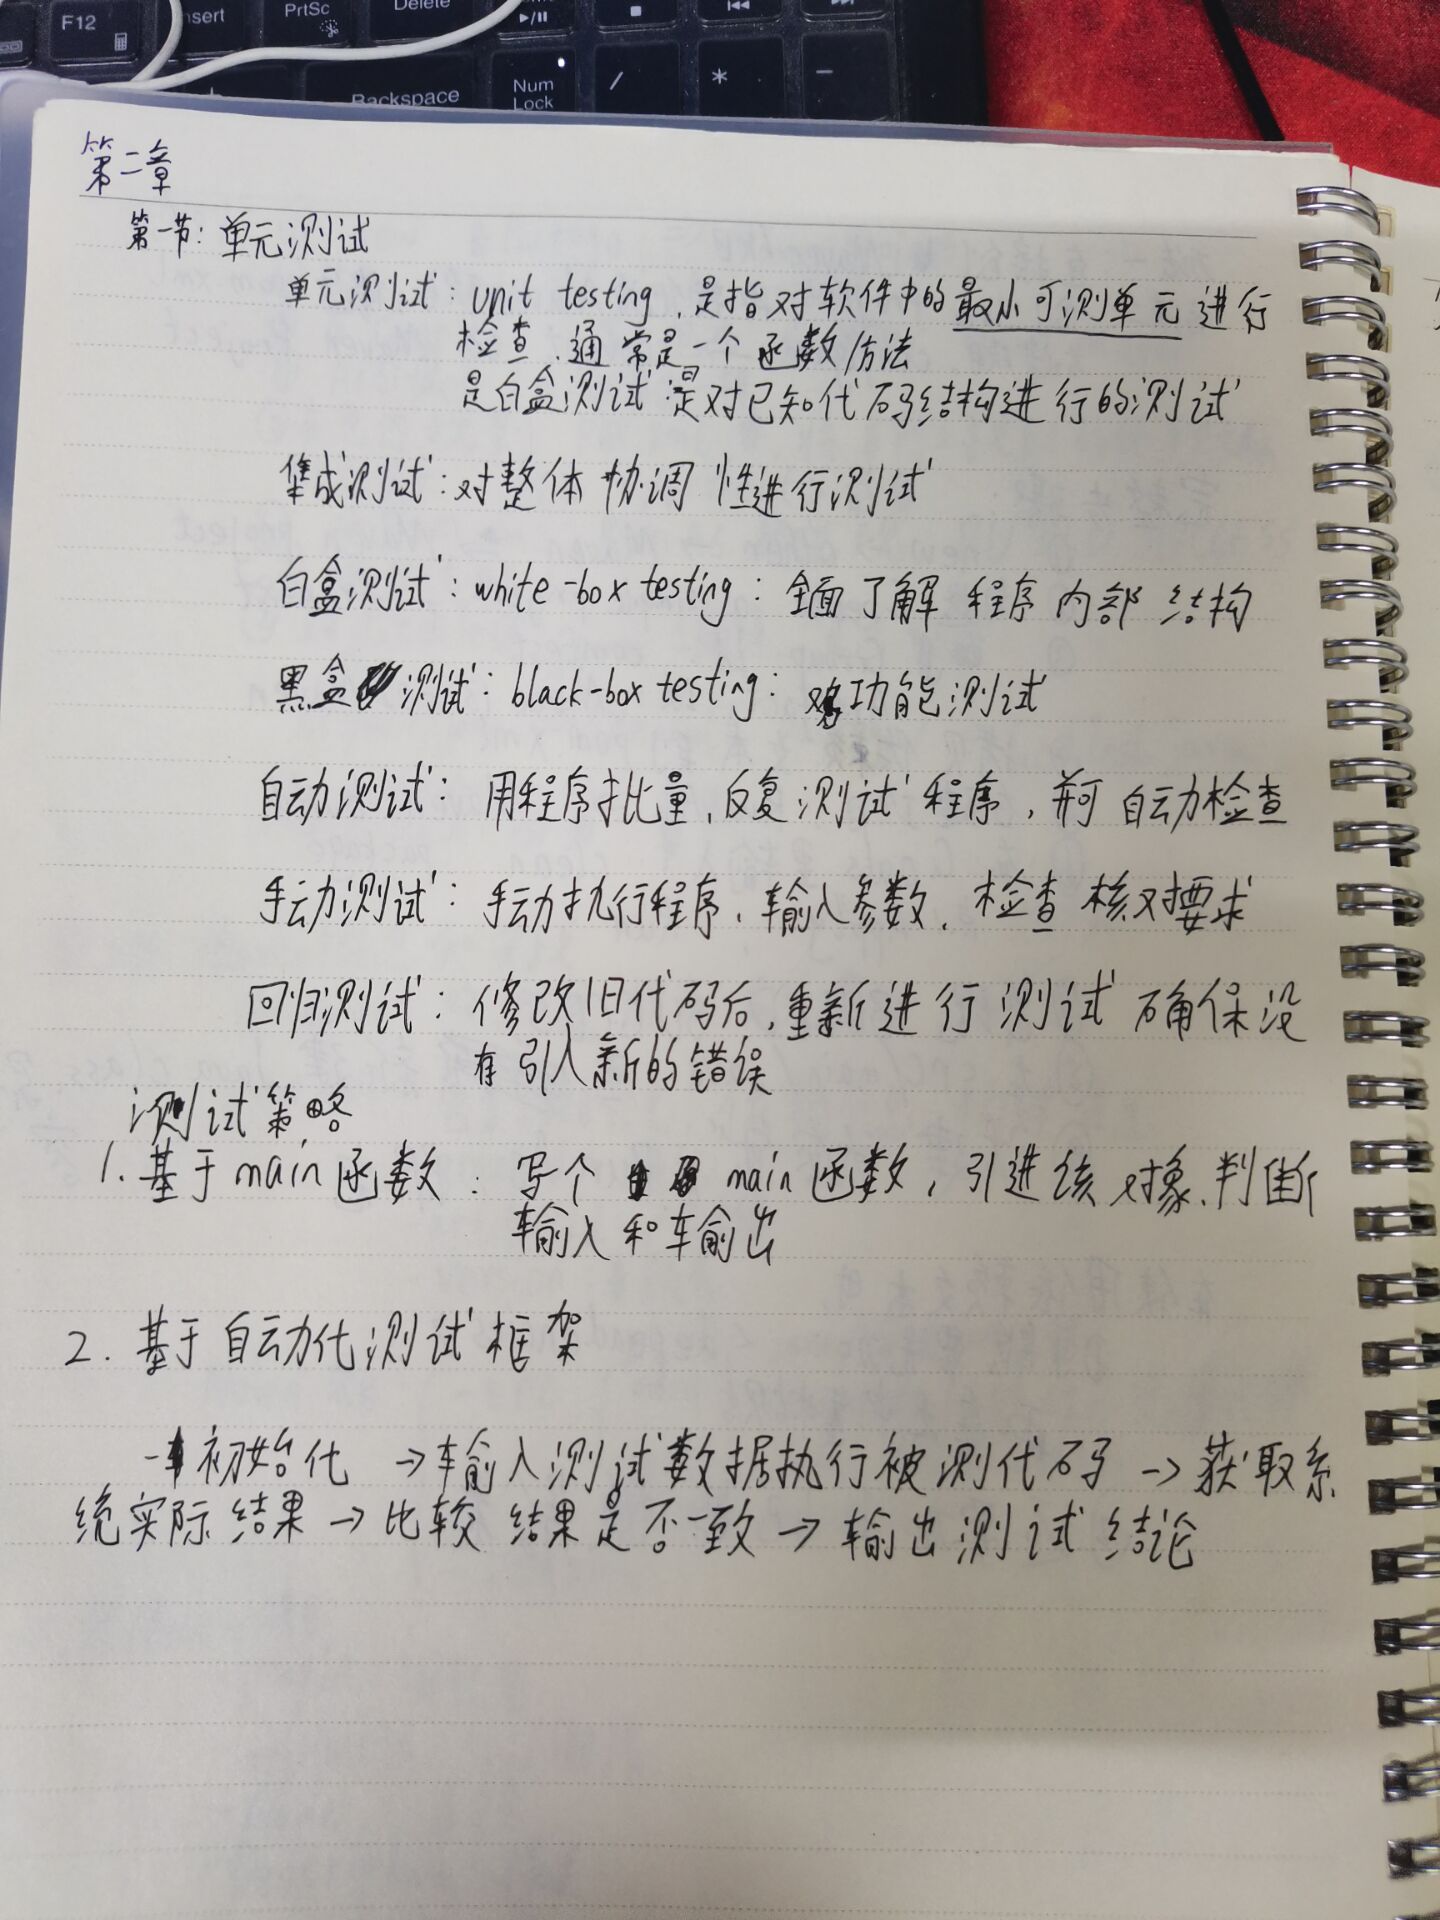 F12
Insert
PrtSc
Delete
Backspace
Num
Lock
/
*
-
第二章
第一节: 单元测试
单元测试: unit testing, 是指对软件中的最小可测单元进行
检查,通常是一个函数/方法
是白盒测试 是对已知代码结构进行的测试
集成测试: 对整体协调性进行测试
白盒测试: white-box testing: 全面了解程序内部结构
黑盒测试: black-box testing: 功能测试
自动测试: 用程序批量,反复测试程序,并可自动检查
手动测试: 手动执行程序、输入参数、检查核对要求
回归测试: 修改旧代码后,重新进行测试确保没
有引入新的错误
测试策略
1. 基于main函数: 写个main函数,引进该对象、判断
输入和输出
2. 基于自动化测试框架
初始化→输入测试数据执行被测代码→获取系
统实际结果→比较结果是否一致→输出测试结论